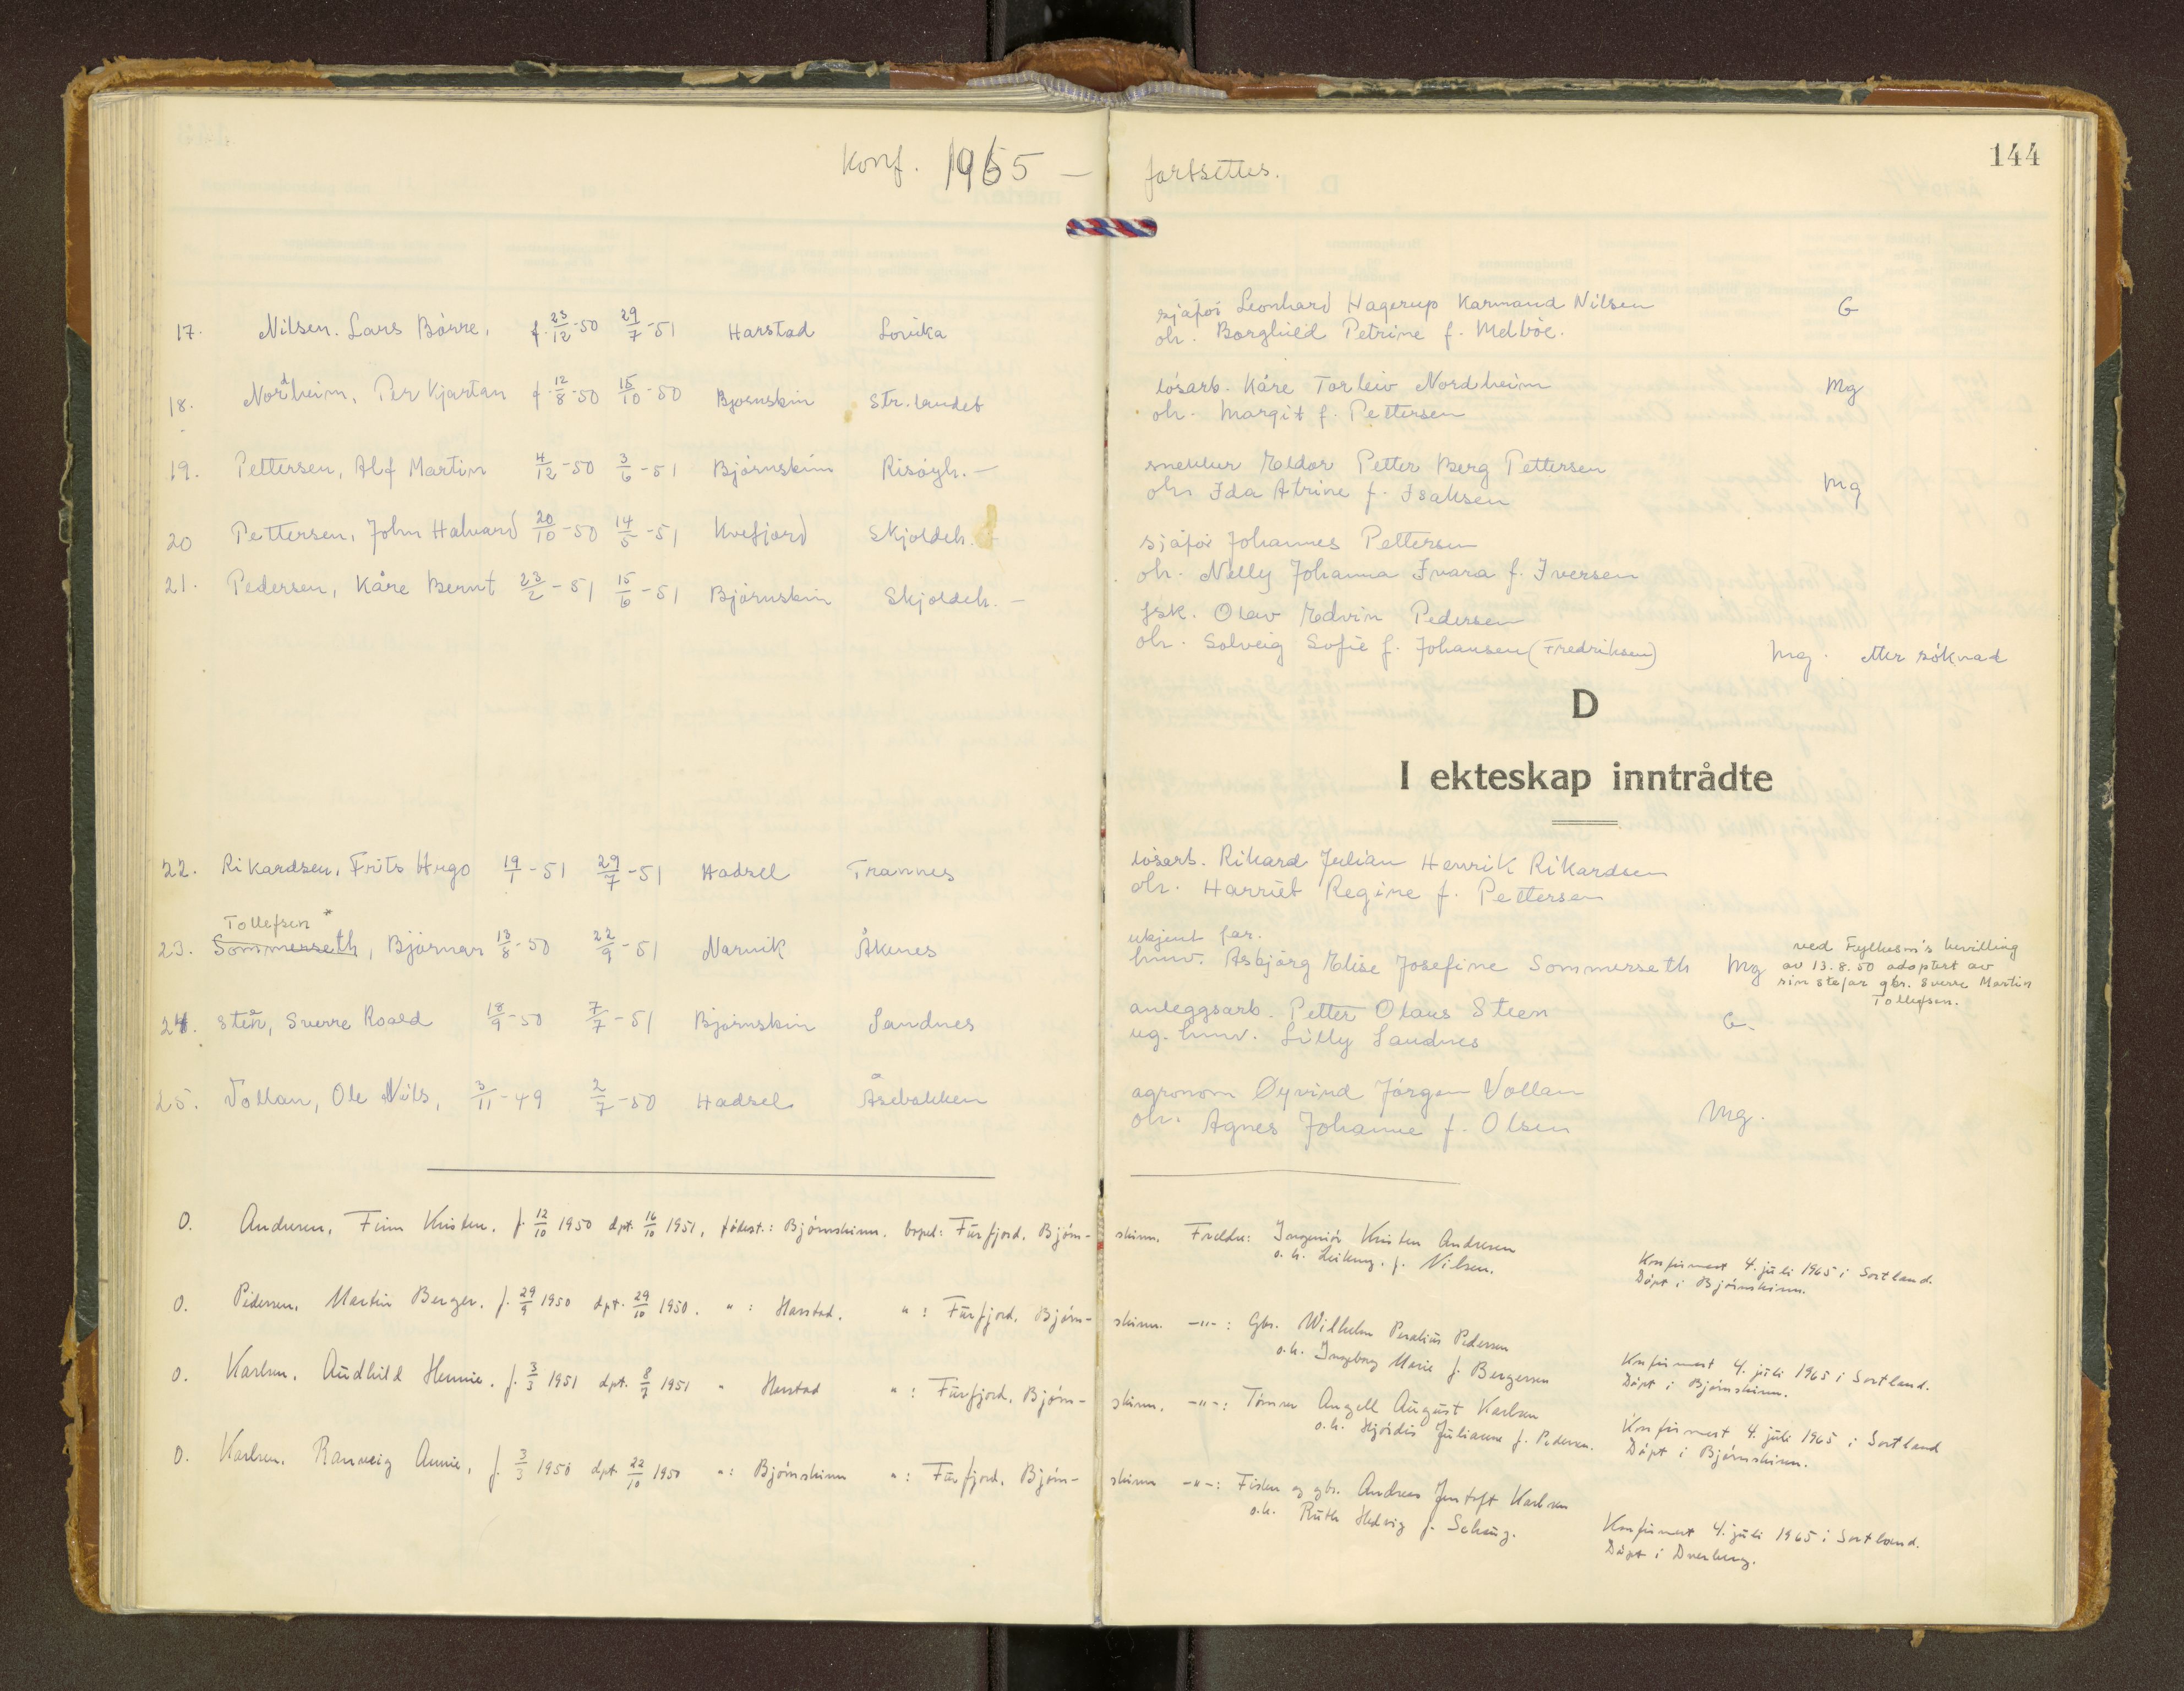 144
Konf. 1965 — fortsettes.
17. Nilsen. Lars Børre, f. 23/12-50 29/7-51 Harstad Lovika
sjåfør Leonhard Hagerup Karmand Nilsen G
oh. Borghild Petrine f. Melbøe.
18. Nordheim, Per Kjartan f. 12/8-50 15/10-50 Bjørnskin Str.landet
løsarb. Kåre Torleiv Nordheim Mg
oh. Margit f. Pettersen
19. Pettersen, Alf Martin 4/12-50 3/6-51 Bjørnskin Risøyh. —
snekker Eldor Petter Berg Pettersen
oh. Ida Atrine f. Isaksen Mg
20 Pettersen, John Halvard 20/10-50 14/5-51 Kvefjord Skjoldeh.
sjåfør Johannes Pettersen
oh. Nelly Johanna Ivara f. Iversen
21. Pedersen, Kåre Bernt 23/2-51 15/6-51 Bjørnskin Skjoldeh. —
fsk. Olav Edvin Pedersen
oh. Solveig Sofie f. Johansen (Fredriksen) Mg. etter søknad
D
I ekteskap inntrådte
22. Rikardsen, Frits Hugo 19/1-51 29/7-51 Hadsel Trannes
løsarb. Rikard Julian Henrik Rikardsen
oh. Harriet Regine f. Pettersen
Tollefsen *
23. Sommerseth, Bjørnar 13/8-50 22/9-51 Narvik Åknes
ukjent far.
hmv. Asbjørg Elise Josefine Sommerseth Mg
ved Fylkesm's bevilling
av 13.8.50 adoptert av
sin stefar gbr. Sverre Martin
Tollefsen.
24. Sten, Sverre Roald 18/9-50 7/7-51 Bjørnskin Sandnes
anleggsarb. Petter Olaus Steen G.
ug. hmv. Lilly Sandnes
25. Vollan, Ole Nils, 3/11-49 2/7-50 Hadsel Åsebakken
agronom Øyvind Jørgen Vollan
oh. Agnes Johanne f. Olsen Mg.
0. Andresen, Finn Kristen. f. 12/10 1950 dpt. 16/10 1951, fødest.: Bjørnskinn. bopel: Finfjord, Bjørn- skinn. Foreldre: Ingeniør Kristen Andresen
o.h. f. Nilsen.
Konfirmert 4. juli 1965 i Sortland.
Døpt i Bjørnskinn.
0. Pedersen, Martin Berger. f. 29/9 1950 dpt. 29/10 1950. " : Harstad. " : Finfjord, Bjørn- skinn. -"- : Gbr. Wilhelm Pedersen
o.h. Ingeborg Marie f. Bergersen
Konfirmert 4. juli 1965 i Sortland.
Døpt i Bjørnskinn.
0. Karlsen, Audhild Hennie. f. 3/3 1951 dpt. 8/7 1951 " Harstad " : Finfjord, Bjørn- skinn. -"- : Tømrer Angell August Karlsen
o.h. Hjørdis Julianne f. Pedersen.
Konfirmert 4. juli 1965 i Sortland
Døpt i Bjørnskinn.
0. Karlsen, Ranveig Annie, f. 3/3 1950 dpt. 22/10 1950 " : Bjørnskinn " : Finfjord, Bjørn- skinn -"- : Fisker og gbr. Andreas Jentoft Karlsen
o.h. Ruth Hedvig f. Schøng.
Konfirmert 4. juli 1965 i Sortland.
Døpt i Dverberg.